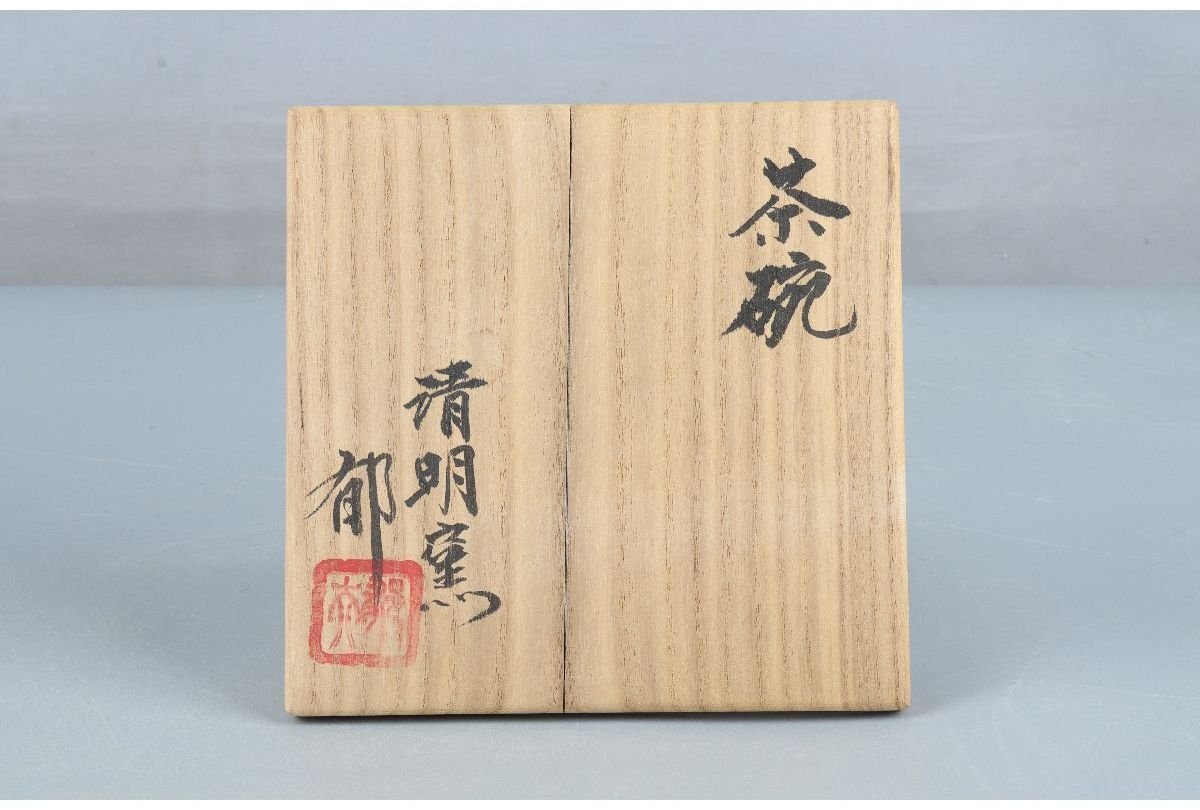 茶碗
清明窯
郁